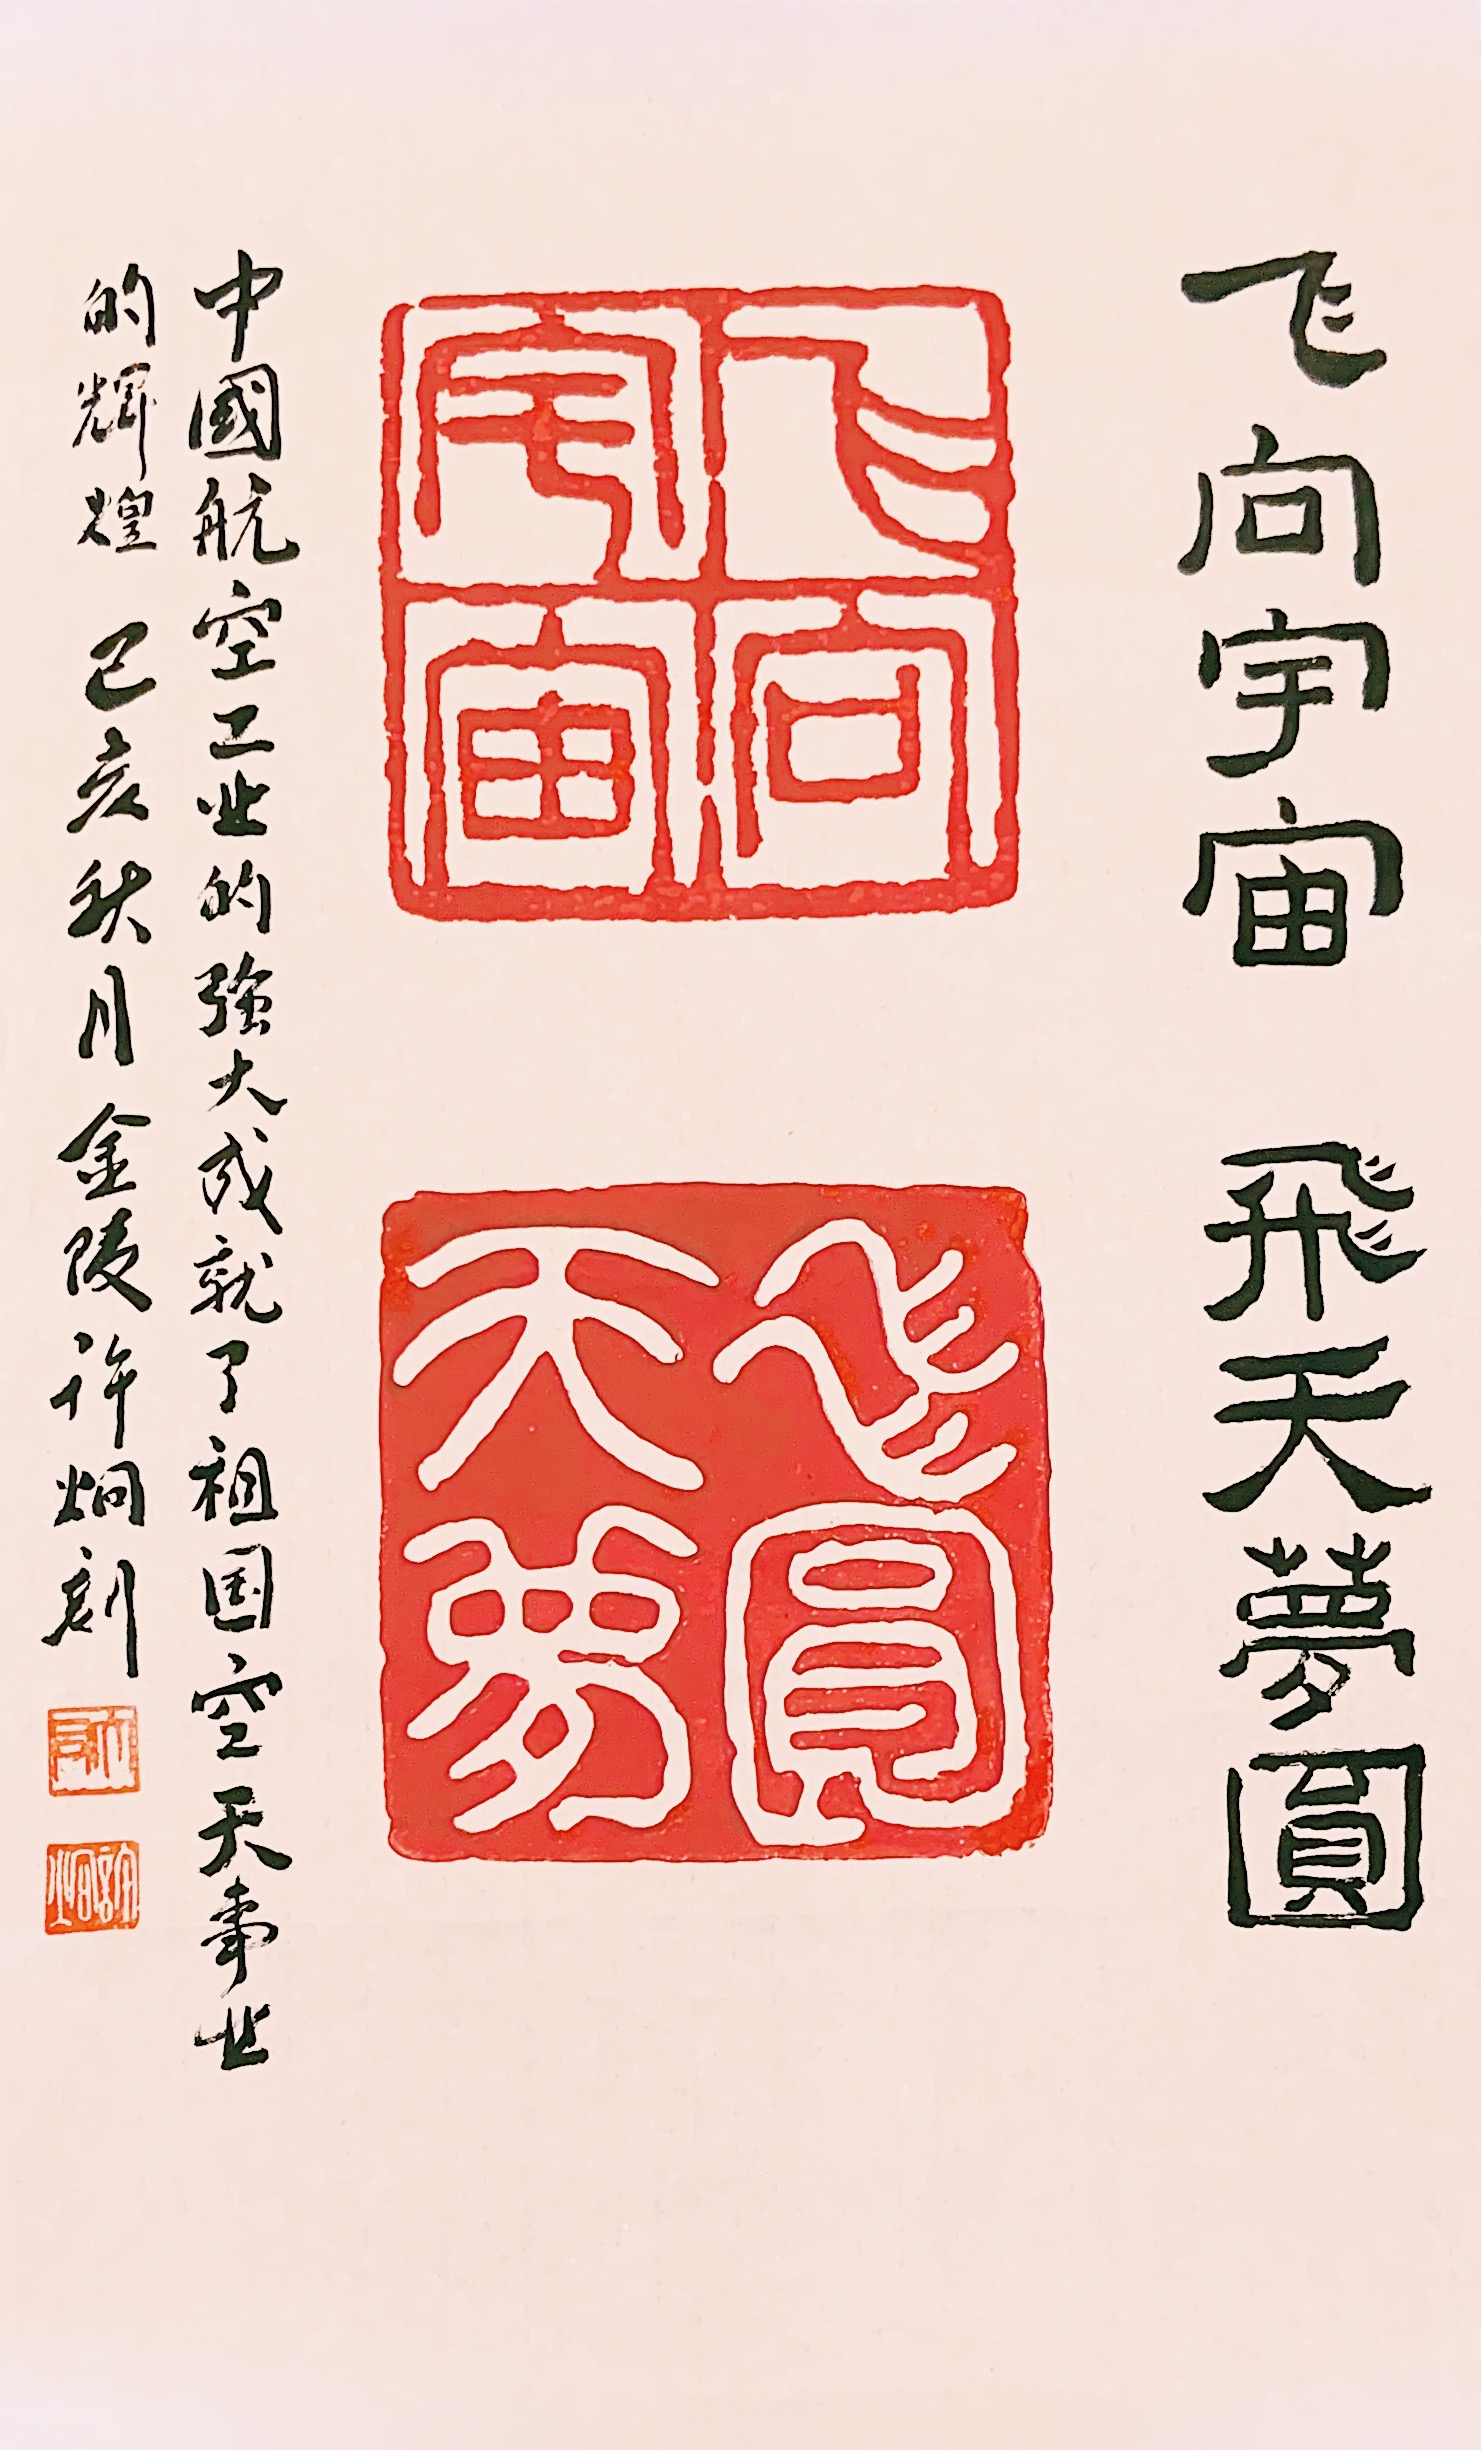 飞向宇宙 飛天夢圓
飞向宇宙
飛圓天夢
中國航空工业的強大成就了祖国空天事业
的輝煌 己亥秋月金陵许炯刻